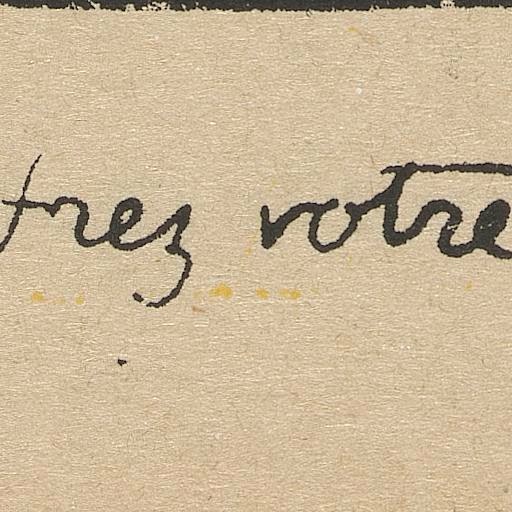 trez votre